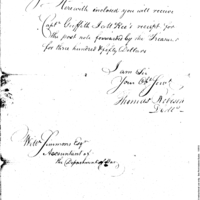 Herewith enclosed you will receive
Capt. Griffith J. McRee's receipt for
the post note forwarded by the Treasurer
for three hundred & fifty Dollars
I am Sir
Your Obt. Servt.
Willm. Simmons Esqr.
Accountant of
the Department of War